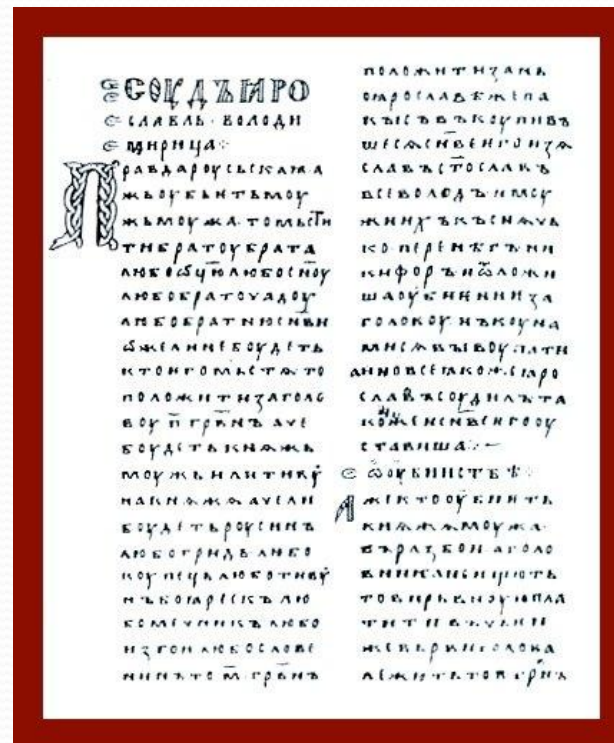 СОУДЪ ꙖРО
СЛАВЛЬ· ВОЛОДИ
МИРИЦА⁘
Правда роусьскаꙗ· а
жь оубьить моу
жь моужа· то мьстⷮи
ти братоу брата
любо ѿцю· любо сн҃оу
любо братоучадоу
любо братню сн҃ви
ѡже ли не боудеть
кто ѥго мьстѧ то
положити за голо
воу п҃ грвн҃ъ аче
боудеть кнѧжь
моужь или тивоу
на кнѧжѧ аче ли
боудеть роусинъ
любо гридь любо
коупець любо тивоу
нъ боꙗрескъ лю
бо мечникъ любо
изгои любо слове
нинъ то м҃ грвн҃ъ
положити за нь
о ꙗрославѣ же па
кы съвъкоупивъ
шесѧ сн҃ве ѥго изѧ
славъ ст҃ославъ
всеволодъ и моу
жи ихъ къснѧчь
ко перенѣгъ ни
кифоръ и ѿложи
ша оубиение за
головоу нъ коуна
ми сѧ выкоупати
а ино все ꙗкоже ꙗро
славъ соудилъ та
коже и сн҃ве ѥго оу
ставиша⁘
ѡ оубииствѣ⁘
Аже кто оубиить
кнѧжѧ моужа·
въ разбои а голо
вника не ищють
то вирьвноую пла
тити въ чьѥи
же вьрви голова
лежить то п҃ грвн҃ъ